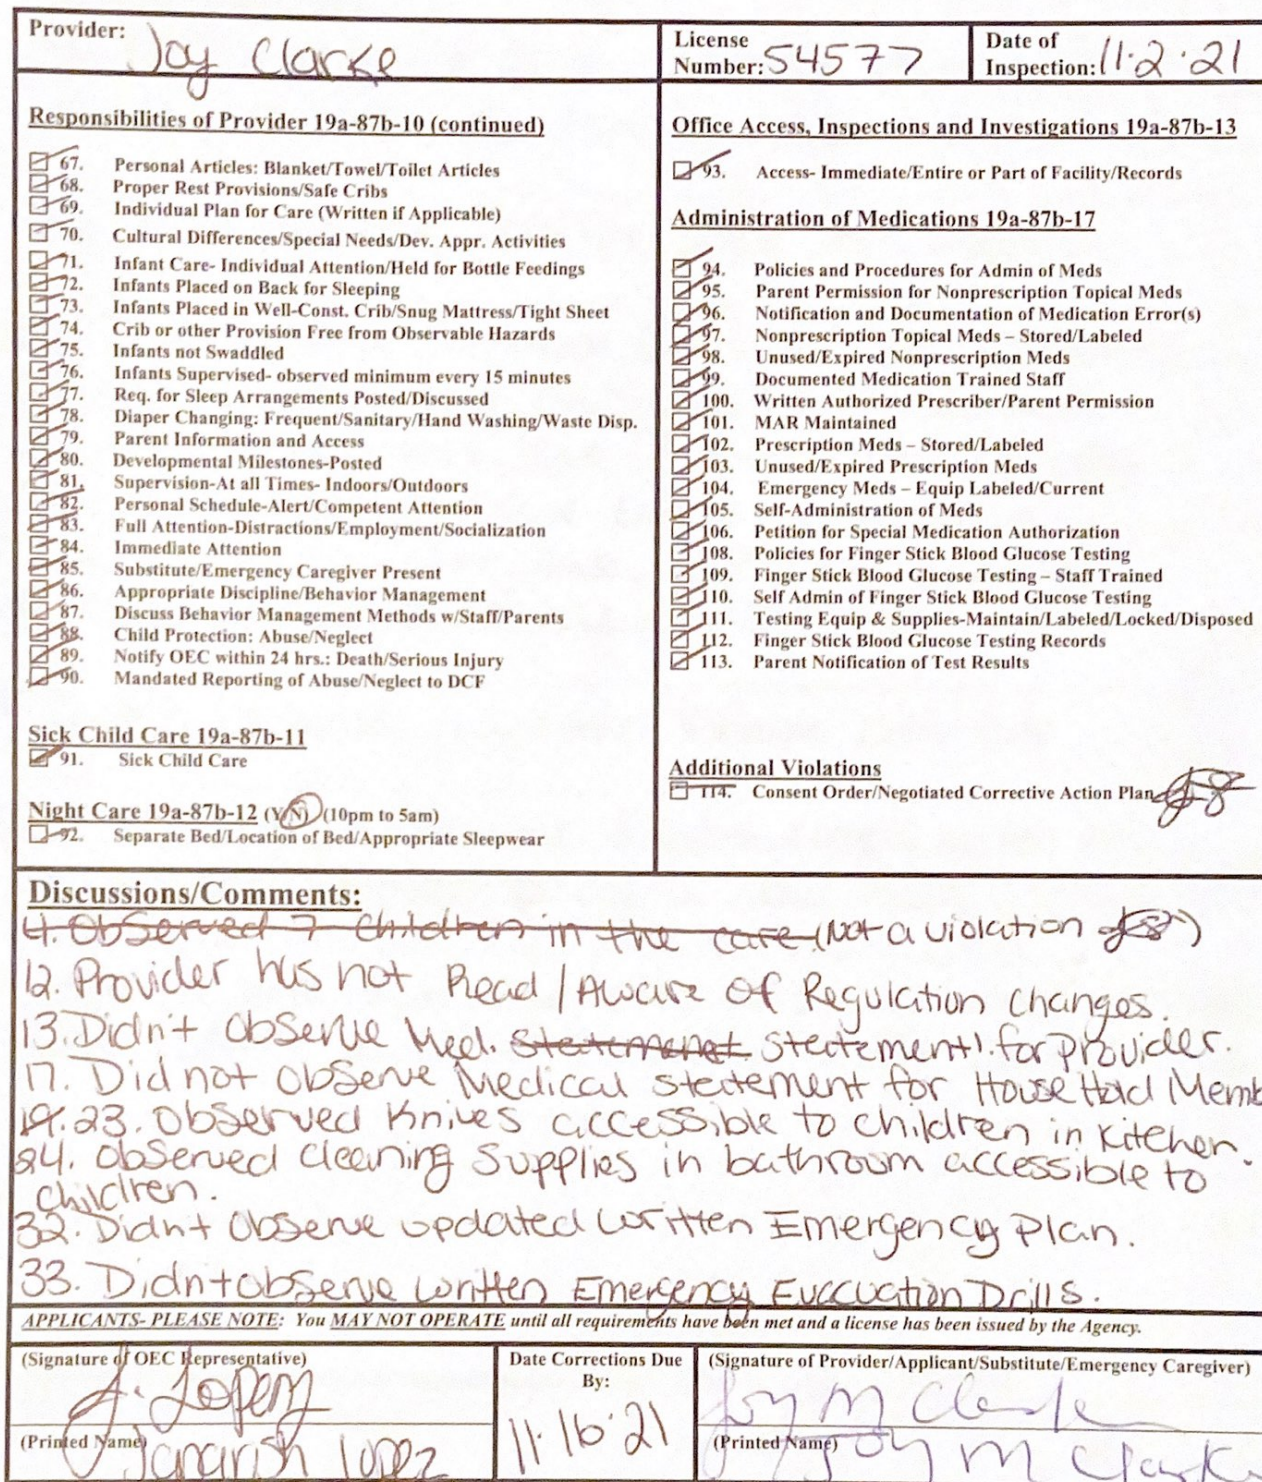 Provider: Joy Clarke
License Number: 54577
Date of Inspection: 11·2·21
Responsibilities of Provider 19a-87b-10 (continued)
67. Personal Articles: Blanket/Towel/Toilet Articles
68. Proper Rest Provisions/Safe Cribs
69. Individual Plan for Care (Written if Applicable)
70. Cultural Differences/Special Needs/Dev. Appr. Activities
71. Infant Care- Individual Attention/Held for Bottle Feedings
72. Infants Placed on Back for Sleeping
73. Infants Placed in Well-Const. Crib/Snug Mattress/Tight Sheet
74. Crib or other Provision Free from Observable Hazards
75. Infants not Swaddled
76. Infants Supervised- observed minimum every 15 minutes
77. Req. for Sleep Arrangements Posted/Discussed
78. Diaper Changing: Frequent/Sanitary/Hand Washing/Waste Disp.
79. Parent Information and Access
80. Developmental Milestones-Posted
81. Supervision-At all Times- Indoors/Outdoors
82. Personal Schedule-Alert/Competent Attention
83. Full Attention-Distractions/Employment/Socialization
84. Immediate Attention
85. Substitute/Emergency Caregiver Present
86. Appropriate Discipline/Behavior Management
87. Discuss Behavior Management Methods w/Staff/Parents
88. Child Protection: Abuse/Neglect
89. Notify OEC within 24 hrs.: Death/Serious Injury
90. Mandated Reporting of Abuse/Neglect to DCF
Sick Child Care 19a-87b-11
91. Sick Child Care
Night Care 19a-87b-12 (Y/N) (10pm to 5am)
92. Separate Bed/Location of Bed/Appropriate Sleepwear
Office Access, Inspections and Investigations 19a-87b-13
93. Access- Immediate/Entire or Part of Facility/Records
Administration of Medications 19a-87b-17
94. Policies and Procedures for Admin of Meds
95. Parent Permission for Nonprescription Topical Meds
96. Notification and Documentation of Medication Error(s)
97. Nonprescription Topical Meds – Stored/Labeled
98. Unused/Expired Nonprescription Meds
99. Documented Medication Trained Staff
100. Written Authorized Prescriber/Parent Permission
101. MAR Maintained
102. Prescription Meds – Stored/Labeled
103. Unused/Expired Prescription Meds
104. Emergency Meds – Equip Labeled/Current
105. Self-Administration of Meds
106. Petition for Special Medication Authorization
108. Policies for Finger Stick Blood Glucose Testing
109. Finger Stick Blood Glucose Testing – Staff Trained
110. Self Admin of Finger Stick Blood Glucose Testing
111. Testing Equip & Supplies-Maintain/Labeled/Locked/Disposed
112. Finger Stick Blood Glucose Testing Records
113. Parent Notification of Test Results
Additional Violations
114. Consent Order/Negotiated Corrective Action Plan
Discussions/Comments:
4. Observed 7 children in the care (Not a violation )
12. Provider has not Read / Aware of Regulation changes.
13. Didn't observe Med. Statement statement for provider.
17. Did not observe Medical statement for House Hold Memb
19. 23. Observed Knives accessible to children in kitchen.
24. Observed cleaning supplies in bathroom accessible to
children.
32. Didn't observe updated written Emergency plan.
33. Didn't observe written Emergency Evacuation Drills.
APPLICANTS- PLEASE NOTE: You MAY NOT OPERATE until all requirements have been met and a license has been issued by the Agency.
(Signature of OEC Representative)
J. Lopez
(Printed Name) Janarish Lopez
Date Corrections Due By:
11·16·21
(Signature of Provider/Applicant/Substitute/Emergency Caregiver)
Joy M Clarke
(Printed Name) Joy M Clarke